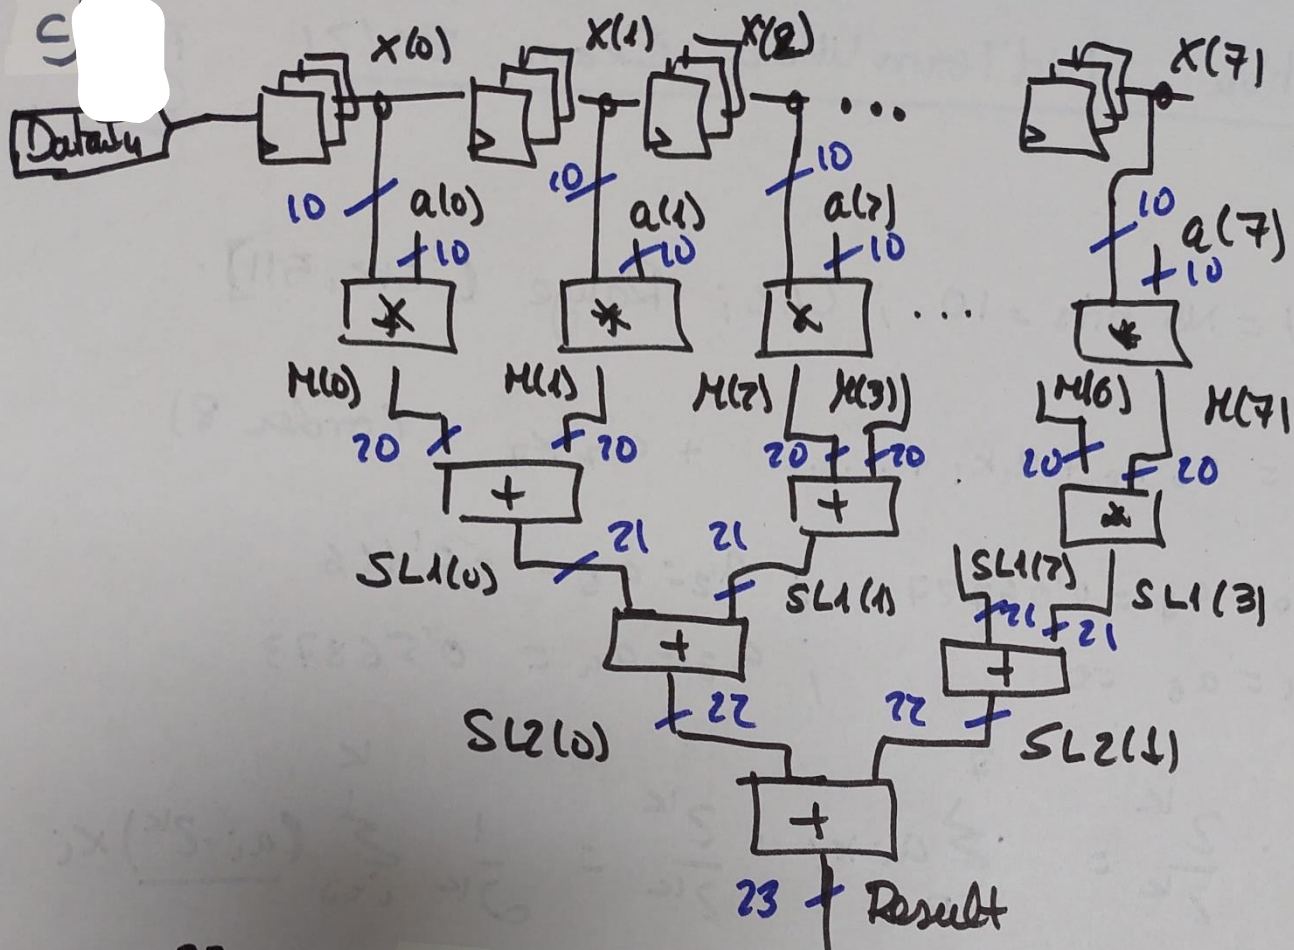 X(0) X(1) X(2) X(7)
...
10 a(0) 10 a(1) 10 a(2) 10 a(7)
10 10 10 10
* * * ... *
M(0) M(1) M(2) M(3) M(6) M(7)
20 20 20 20 20 20
+ + *
SL1(0) 21 21 SL1(1) SL1(2) SL1(3)
21 21
+ +
SL2(0) 22 22 SL2(1)
+
23 Result